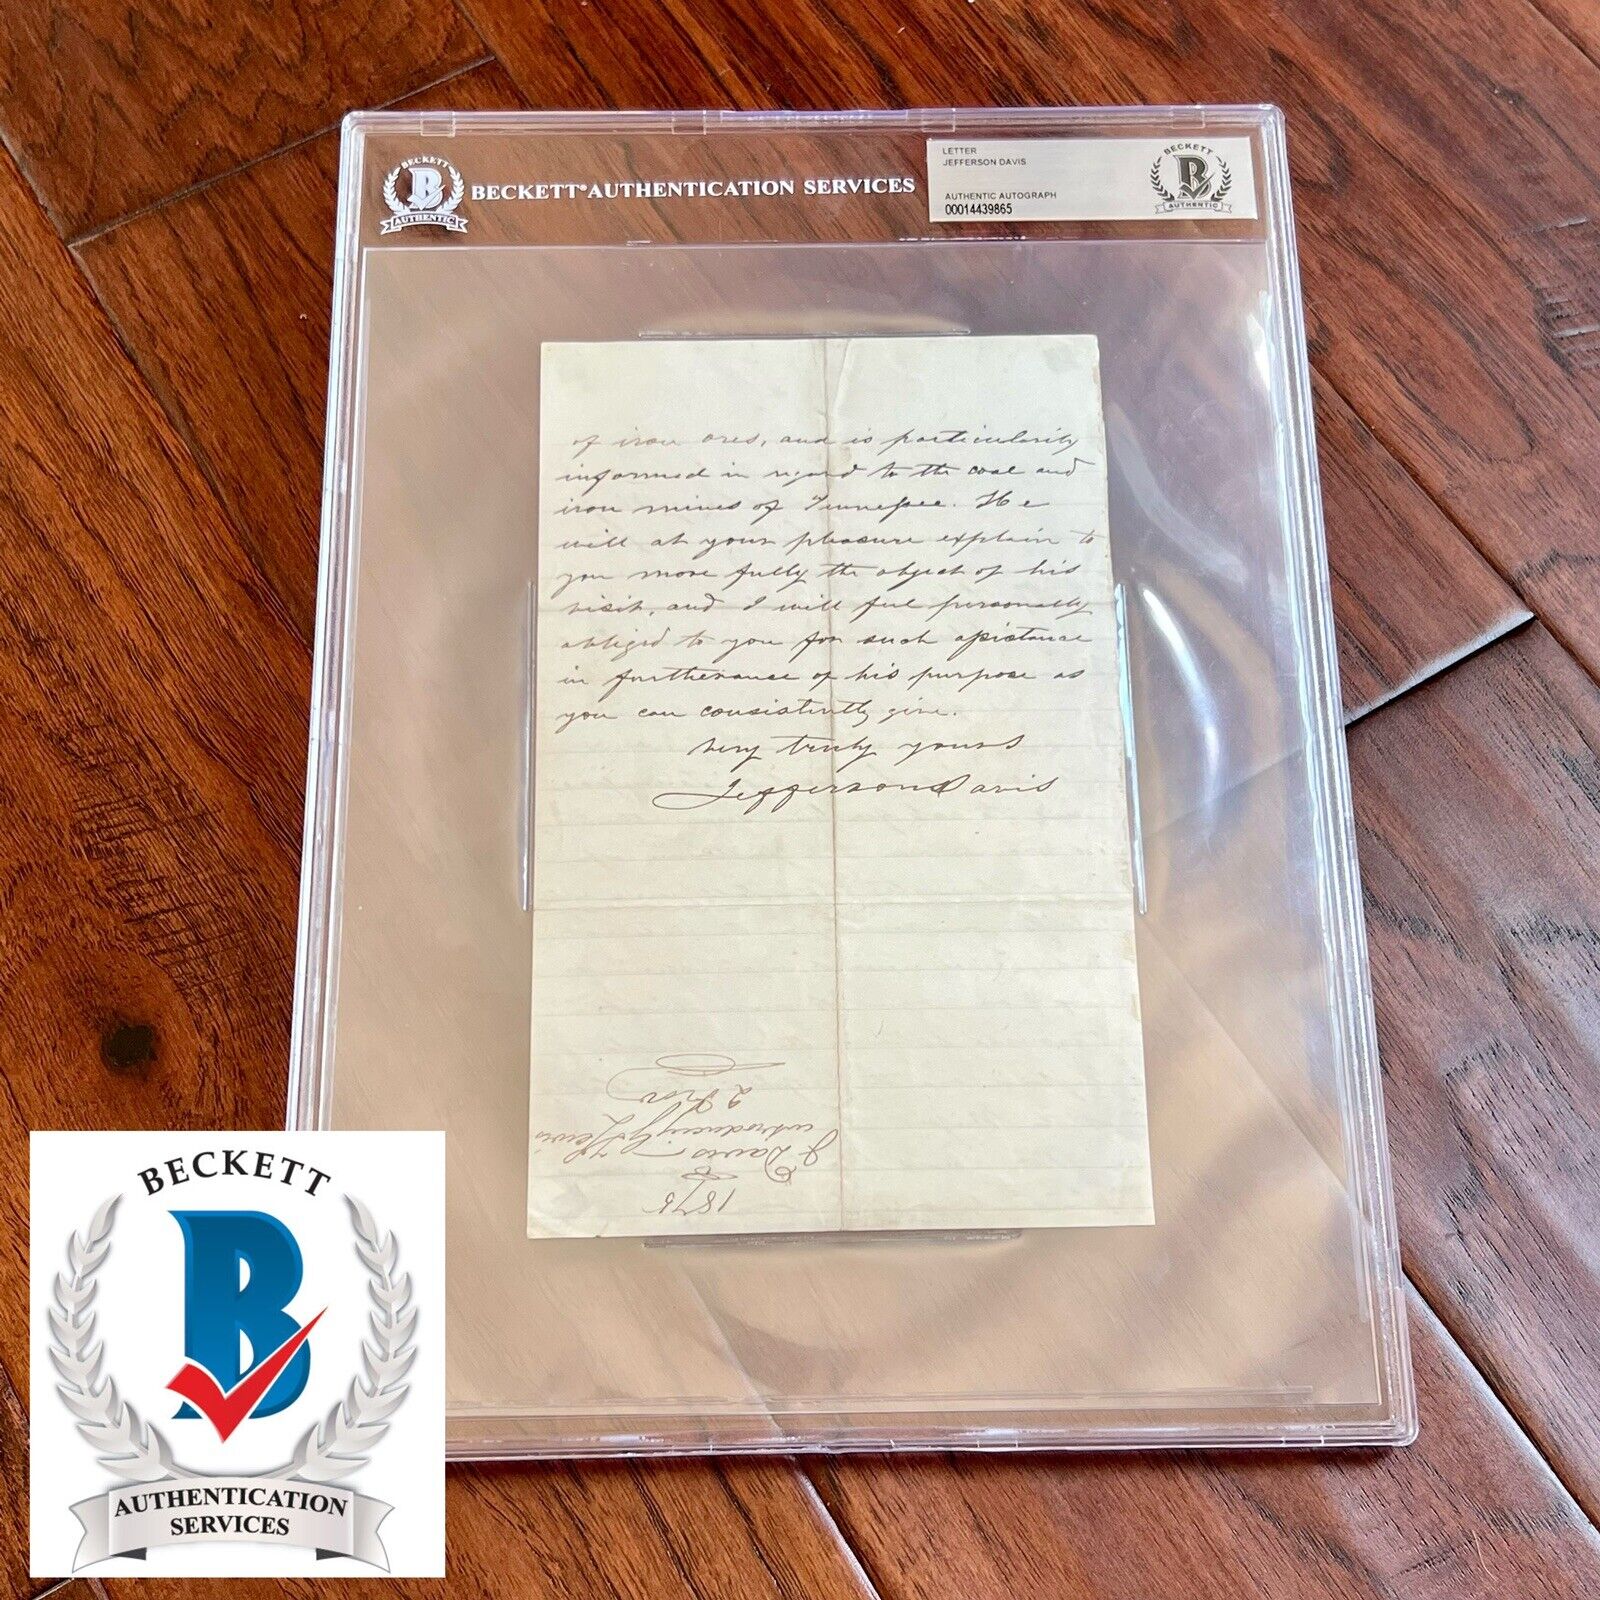 BECKETT
B
AUTHENTIC
BECKETT® AUTHENTICATION SERVICES
LETTER
JEFFERSON DAVIS
AUTHENTIC AUTOGRAPH
00014439865
BECKETT
B
AUTHENTIC
of iron ores, and is particularly
informed in regard to the coal and
iron mines of Tennessee. He
will at your pleasure explain to
you more fully the object of his
visit, and I will feel personally
obliged to you for such assistance
in furtherance of his purpose as
you can consistently give.
Very truly yours
Jefferson Davis
1875
J Davis
introducing
Lewis
2 Nov
BECKETT
B
AUTHENTICATION
SERVICES